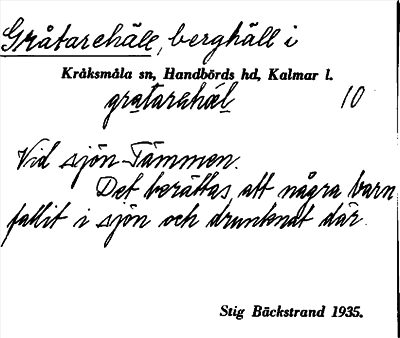 Gråtarehäll, berghäll i
Kråksmåla sn, Handbörds hd, Kalmar l.
gratarahæl 10
Vid sjön Tämmen.
Det berättas, att några barn
fallit i sjön och drunknat där.
Stig Bäckstrand 1935.